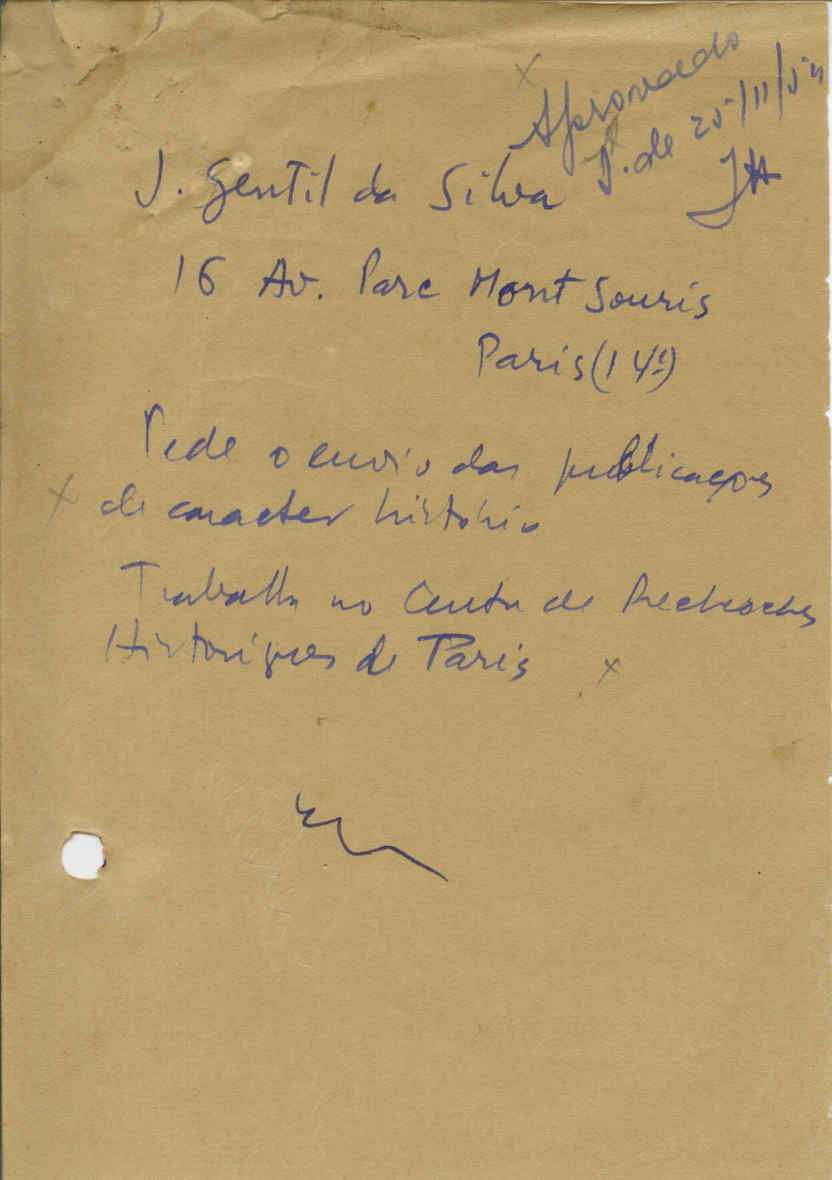 Aprovado
de 25/11/5
J. Gentil da Silva
16 Av. Parc Mont Souris
Paris (14º)
Pede o envio das publicaçoes
de caracter histórico
Trabalha no Centre de Recherches
Historiques de Paris